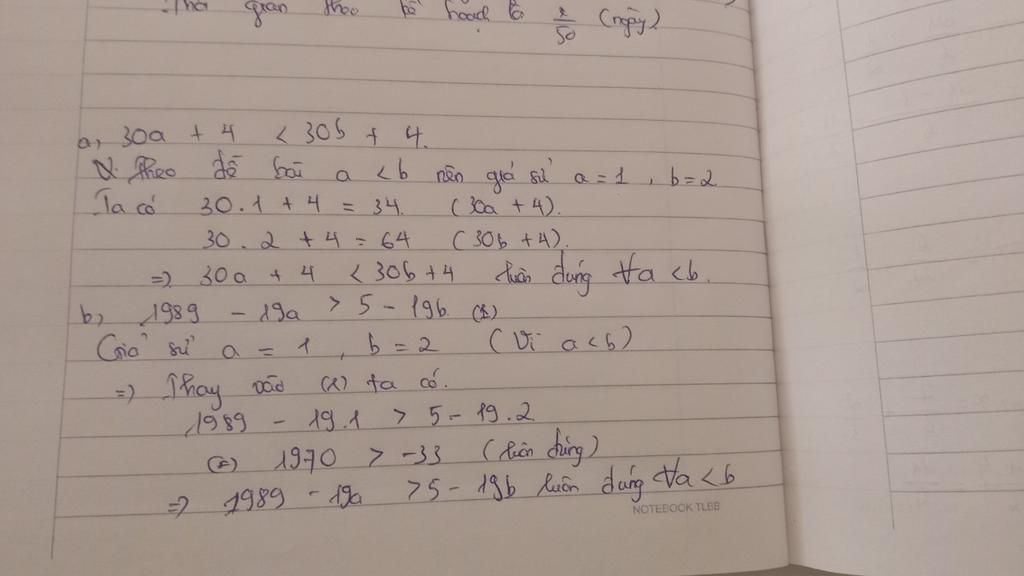 Thời gian theo kế hoạch là x/50 (ngày)
a, 30a + 4 < 30b + 4.
Theo đề bài a < b nên giả sử a = 1, b = 2
Ta có 30.1 + 4 = 34. (30a + 4).
30.2 + 4 = 64 (30b + 4).
=> 30a + 4 < 30b + 4 luôn đúng ∀a < b.
b, 1989 - 19a > 5 - 19b (1)
Giả sử a = 1, b = 2 (Vì a < b)
=> Thay vào (1) ta có.
1989 - 19.1 > 5 - 19.2
(=) 1970 > -33 (luôn đúng)
=> 1989 - 19a > 5 - 19b luôn đúng ∀a < b
NOTEBOOK TLBB